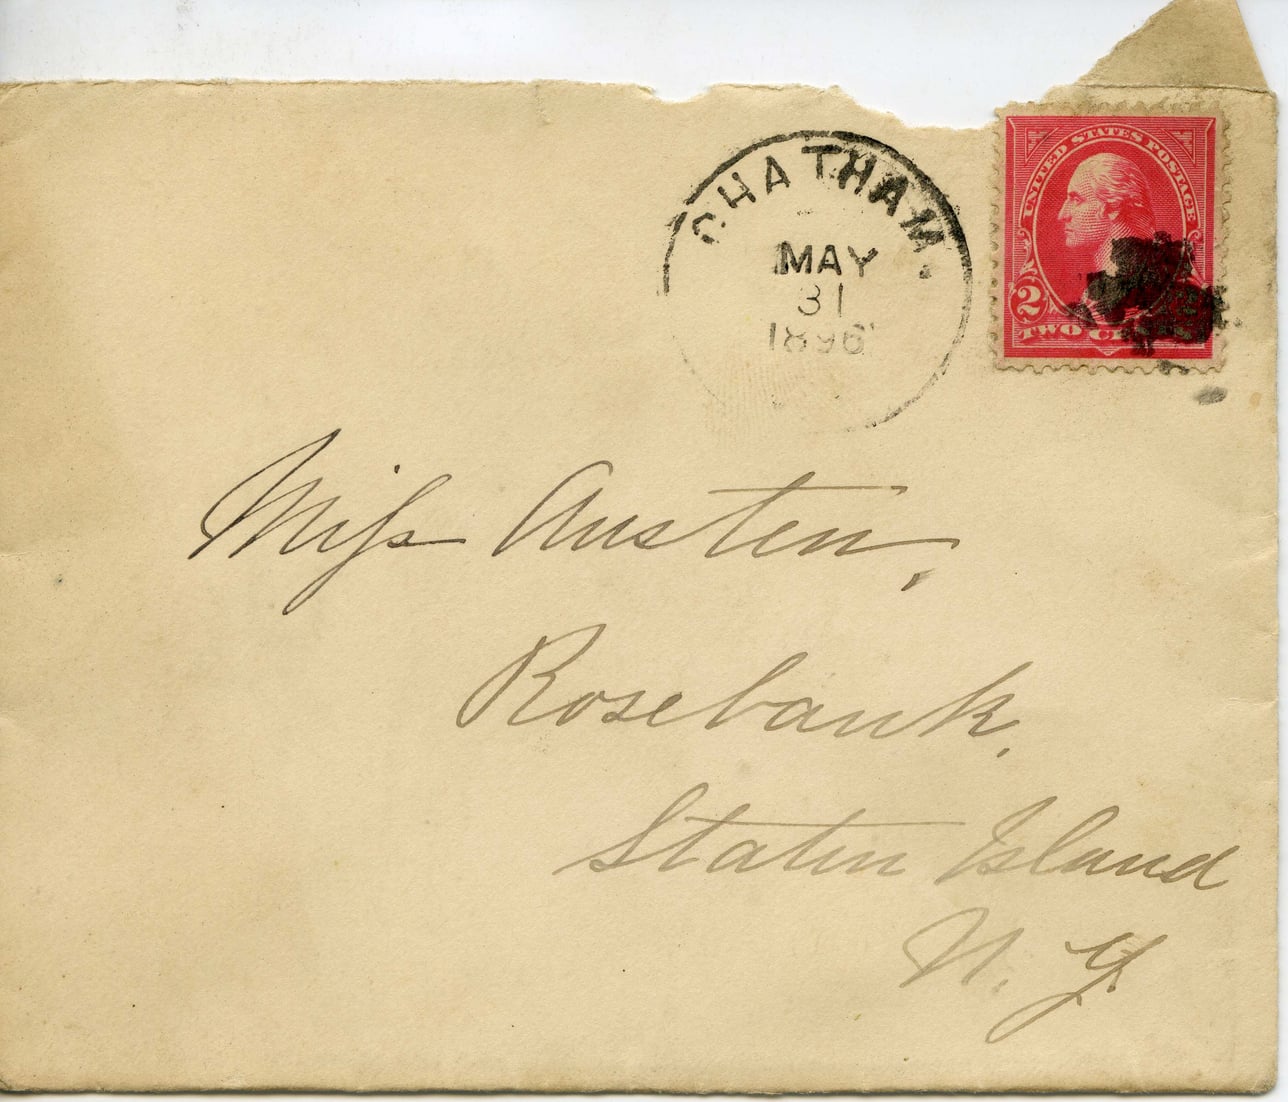 CHATHAM.
MAY
31
1896
UNITED STATES POSTAGE
2
TWO CENTS
Miss Austen,
Rosebank,
Staten Island
N. Y.